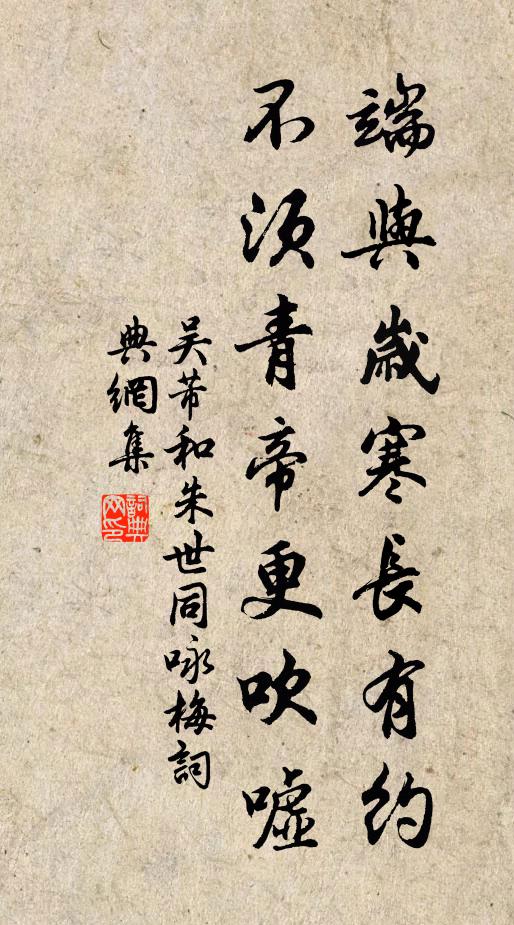 端與歲寒長有約
不須青帝更吹噓
吴芾和朱世同咏梅詞
典網集
詞典网印